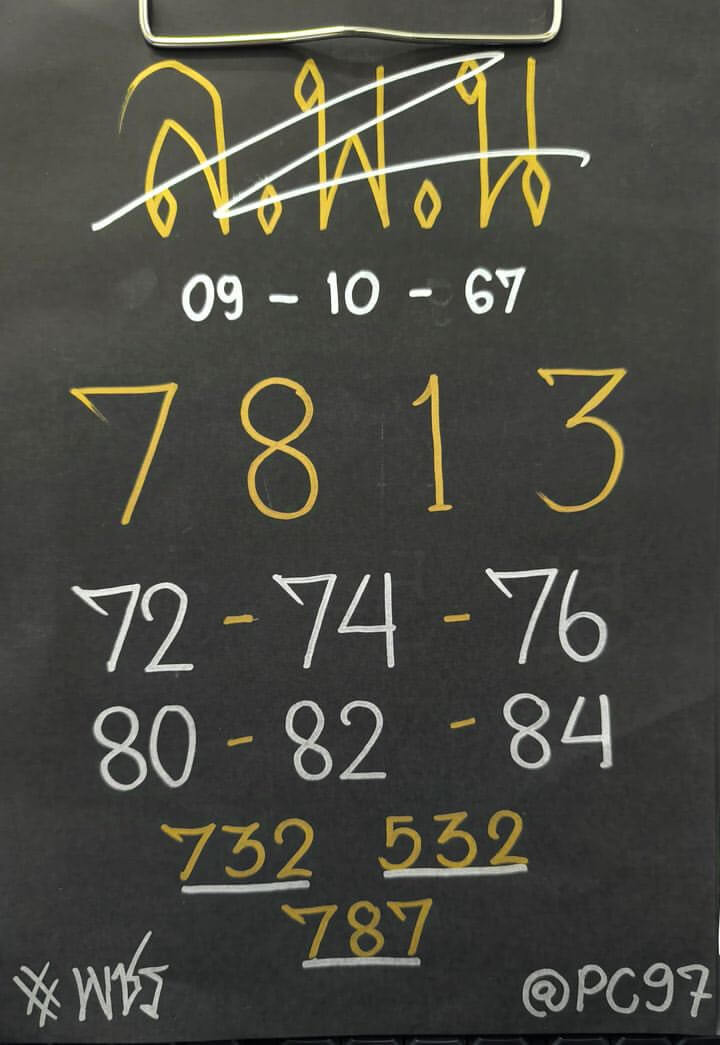 ล.พ.น
09 - 10 - 67
7 8 1 3
72 - 74 - 76
80 - 82 - 84
732 532
787
#พชร @PC97